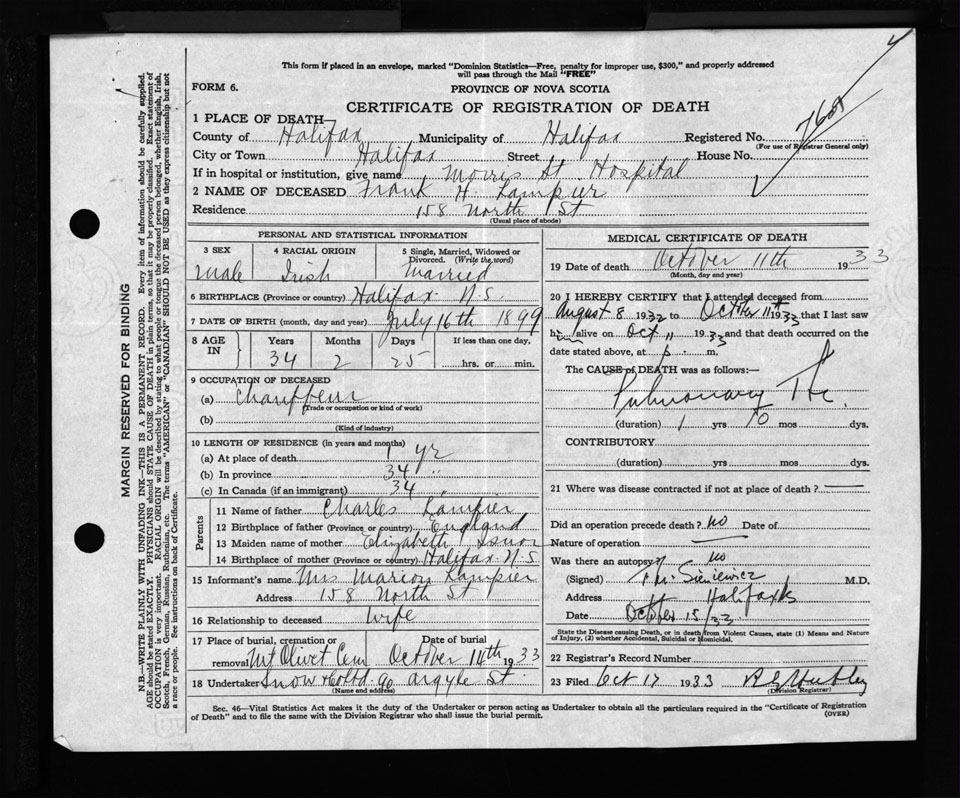 This form if placed in an envelope, marked "Dominion Statistics—Free, penalty for improper use, $300," and properly addressed
will pass through the Mail "FREE"
FORM 6.
PROVINCE OF NOVA SCOTIA
CERTIFICATE OF REGISTRATION OF DEATH
1 PLACE OF DEATH
County of Halifax Municipality of Halifax Registered No. 7601
(For use of Registrar General only)
City or Town Halifax Street House No.
If in hospital or institution, give name Morris St Hospital
2 NAME OF DECEASED Frank H. Lampier
Residence 158 North St
(Usual place of abode)
PERSONAL AND STATISTICAL INFORMATION
3 SEX 4 RACIAL ORIGIN 5 Single, Married, Widowed or
Divorced. (Write the word)
Male Irish Married
6 BIRTHPLACE (Province or country) Halifax N.S.
7 DATE OF BIRTH (month, day and year) July 16th 1899
8 AGE IN Years Months Days If less than one day,
34 2 25 hrs. or min.
9 OCCUPATION OF DECEASED
(a) Chauffeur
(Trade or occupation or kind of work)
(b)
(Kind of industry)
10 LENGTH OF RESIDENCE (in years and months)
(a) At place of death 1 yr
(b) In province 34 "
(c) In Canada (if an immigrant) 34 "
Parents
11 Name of father Charles Lampier
12 Birthplace of father (Province or country) England
13 Maiden name of mother Elizabeth
14 Birthplace of mother (Province or country) Halifax N.S.
15 Informant's name Mrs Marion Lampier
Address 158 North St
16 Relationship to deceased Wife
17 Place of burial, cremation or Date of burial
removal Mt Olivet Cem October 14th 1933
18 Undertaker Snow & Co Ltd. 90 Argyle St.
(Name and address)
MEDICAL CERTIFICATE OF DEATH
19 Date of death October 11th 1933
(Month, day and year)
20 I HEREBY CERTIFY that I attended deceased from
August 8 1932 to October 11th 1933 that I last saw
him alive on Oct 11 1933 and that death occurred on the
date stated above, at m.
The CAUSE of DEATH was as follows:—
Pulmonary Tbc.
(duration) 1 yrs 10 mos dys.
CONTRIBUTORY
(duration) yrs mos dys.
21 Where was disease contracted if not at place of death? —
Did an operation precede death? no Date of
Nature of operation
Was there an autopsy? no
(Signed) Sieniewicz M.D.
Address Halifax
Date October 15/33
State the Disease causing Death, or in death from Violent Causes, state (1) Means and Nature
of Injury, (2) whether Accidental, Suicidal or Homicidal.
22 Registrar's Record Number
23 Filed Oct 17 1933
(Division Registrar)
Sec. 46—Vital Statistics Act makes it the duty of the Undertaker or person acting as Undertaker to obtain all the particulars required in the "Certificate of Registration
of Death" and to file the same with the Division Registrar who shall issue the burial permit.
(OVER)
MARGIN RESERVED FOR BINDING
N.B.—WRITE PLAINLY WITH UNFADING INK—THIS IS A PERMANENT RECORD. Every item of information should be carefully supplied.
AGE should be stated EXACTLY. PHYSICIANS should STATE CAUSE OF DEATH in plain terms, so that it may be properly classified. Exact statement of
OCCUPATION is very important. RACIAL ORIGIN will be described by stating to what people or tongue the deceased person belonged, whether English, Irish,
Scotch, French, German, Russian, Ruthenian, etc. The terms "AMERICAN" or "CANADIAN" SHOULD NOT BE USED as they express citizenship but not
a race or people. See instructions on back of Certificate.